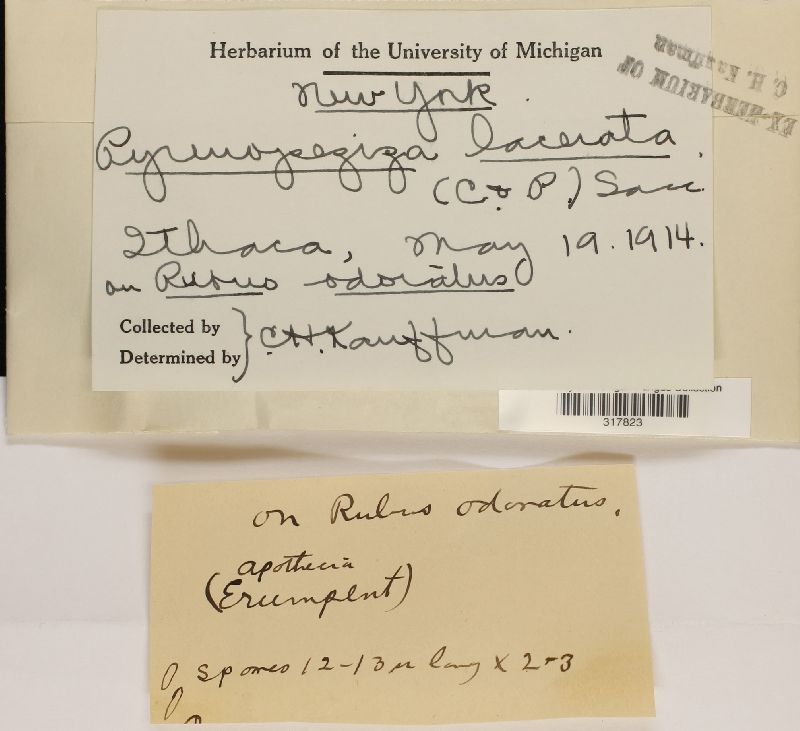 Herbarium of the University of Michigan
EX-HERBARIUM OF
C. H. Kauffman
New York.
Pyrenopeziza lacerata.
(C & P.) Sacc.
Ithaca, May 19. 1914.
on Rubus odoratus
Collected by
Determined by
C.H. Kauffman.
Collection
317823
on Rubus odoratus.
apothecia
(Erumpent)
Spores 12-13 u long x 2-3